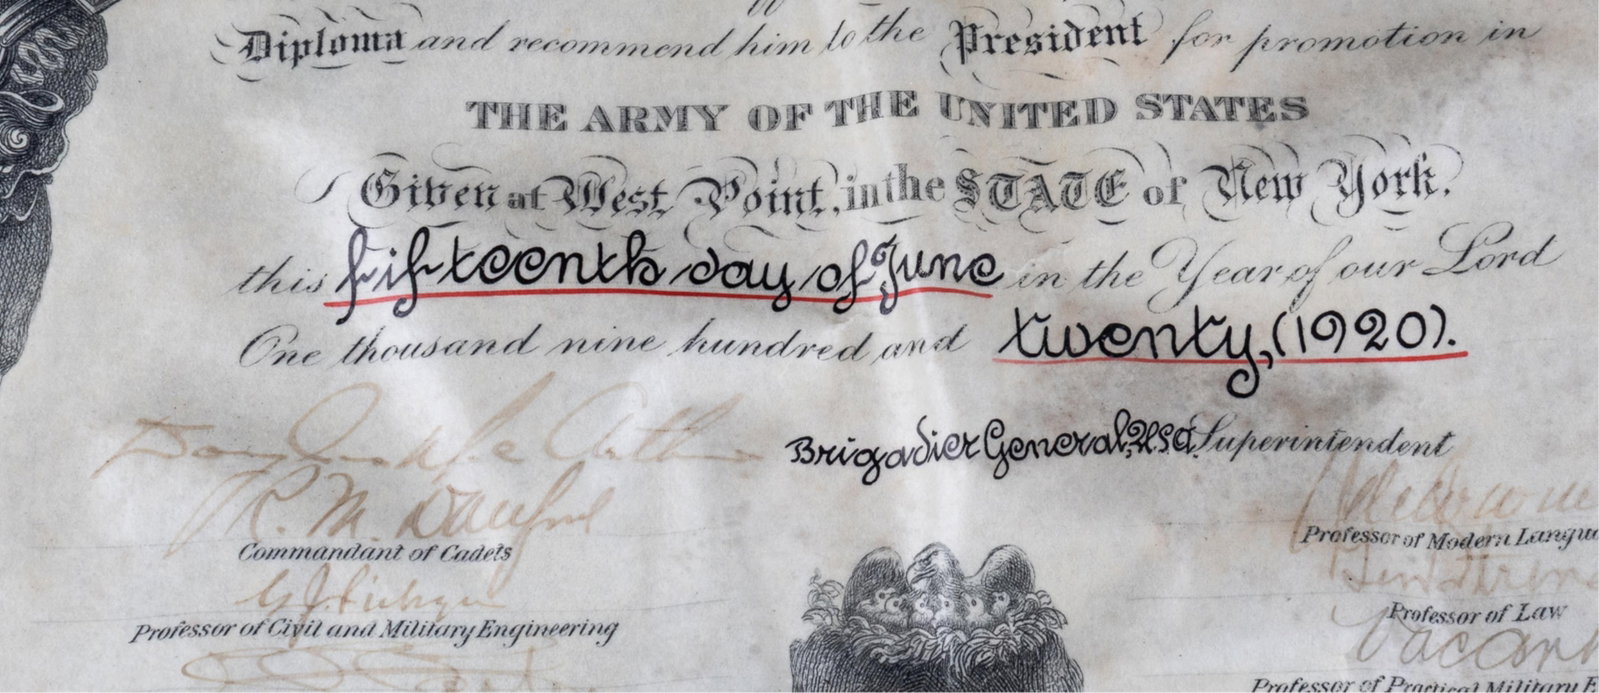 Diploma and recommend him to the President for promotion in
THE ARMY OF THE UNITED STATES
Given at West Point, in the STATE of New York.
this fifteenth day of June in the Year of our Lord
One thousand nine hundred and twenty, (1920).
Douglas MacArthur
Brigadier General, U.S.A. Superintendent
R. M. Danford
Commandant of Cadets
Professor of Modern Langu
Professor of Civil and Military Engineering
Professor of Law
Vacant
Professor of Practical Military E